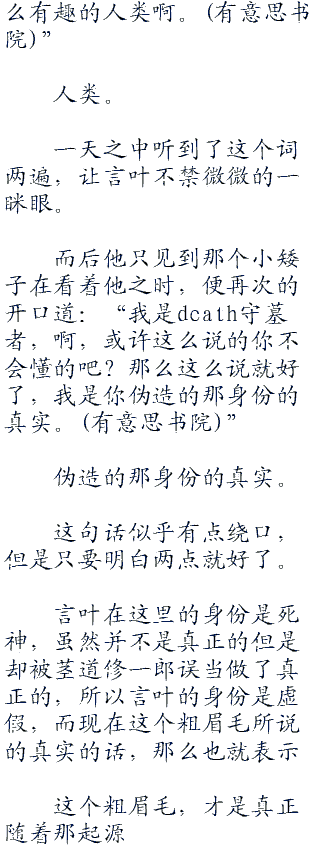 么有趣的人类啊。(有意思书
院)”
人类。
一天之中听到了这个词
两遍，让言叶不禁微微的一
眯眼。
而后他只见到那个小矮
子在看着他之时，便再次的
开口道：“我是dcath守墓
者，啊，或许这么说的你不
会懂的吧？那么这么说就好
了，我是你伪造的那身份的
真实。(有意思书院)”
伪造的那身份的真实。
这句话似乎有点绕口，
但是只要明白两点就好了。
言叶在这里的身份是死
神，虽然并不是真正的但是
却被茎道修一郎误当做了真
正的，所以言叶的身份是虚
假，而现在这个粗眉毛所说
的真实的话，那么也就表示
这个粗眉毛，才是真正
随着那起源